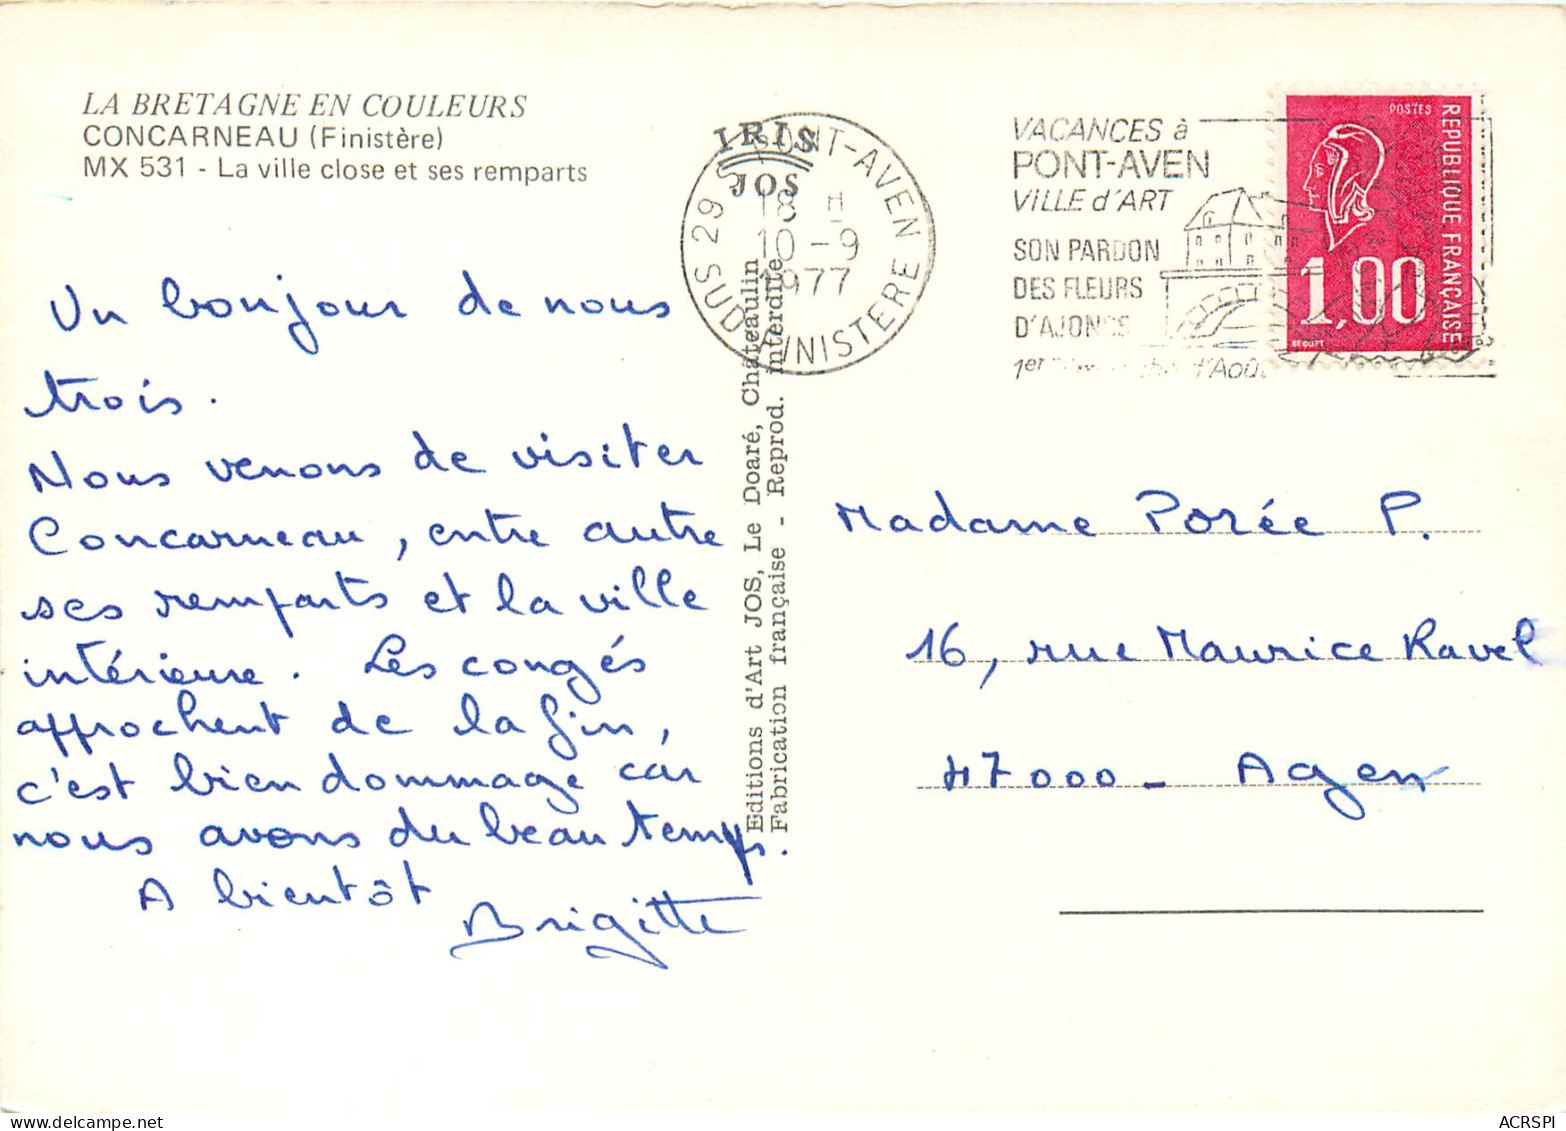 LA BRETAGNE EN COULEURS
CONCARNEAU (Finistère)
MX 531 - La ville close et ses remparts
Un bonjour de nous
trois.
Nous venons de visiter
Concarneau, entre autre
ses remparts et la ville
intérieure. Les congés
approchent de la fin,
c'est bien dommage car
nous avons du beau temps.
A bientôt
Brigitte
IRIS
JOS
29 S PONT-AVEN
18 H
10-9
1977
SUD FINISTERE
Editions d'Art JOS, Le Doaré, Châteaulin
Fabrication française - Reprod. interdite
VACANCES à
PONT-AVEN
VILLE d'ART
SON PARDON
DES FLEURS
D'AJONCS
1er d'Août
POSTES
REPUBLIQUE FRANÇAISE
1,00
BEQUET
Madame Porée P.
16, rue Maurice Ravel
47000 - Agen
ACRSPI